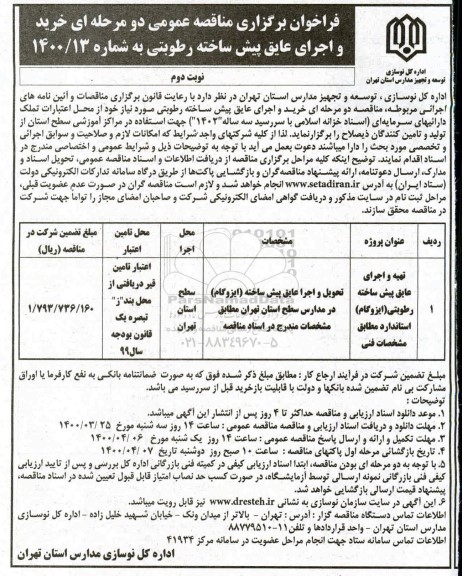 فراخوان برگزاری مناقصه عمومی دو مرحله ای خرید
و اجرای عایق پیش ساخته رطوبتی به شماره ۱۴۰۰/۱۳
اداره کل نوسازی
توسعه و تجهیز مدارس استان تهران
نوبت دوم
اداره کل نوسازی ، توسعه و تجهیز مدارس استان تهران در نظر دارد با رعایت قانون برگزاری مناقصات و آئین نامه های
اجرائی مربوطه، مناقصه دو مرحله ای خرید و اجرای عایق پیش ساخته رطوبتی مورد نیاز خود از محل اعتبارات تملک
دارائیهای سرمایه‌ای (اسناد خزانه اسلامی با سررسید سه ساله "۱۴۰۲") جهت استفاده در مراکز آموزشی سطح استان از
تولید و تامین کنندگان ذیصلاح را برگزار نماید. لذا از کلیه شرکتهای واجد شرایط که امکانات لازم و صلاحیت و سوابق اجرائی
و تخصصی مورد بحث را دارا میباشند دعوت بعمل می آید با توجه به توضیحات ذیل و شرایط عمومی و اختصاصی مندرج در
اسناد اقدام نمایند. توضیح اینکه کلیه مراحل برگزاری مناقصه از دریافت اطلاعات و اسناد مناقصه عمومی، تحویل اسناد و
مدارک، ارسال دعوتنامه، ارائه پیشنهاد مناقصه گران و بازگشایی پاکت‌ها از طریق درگاه سامانه تدارکات الکترونیکی دولت
(ستاد ایران) به آدرس www.setadiran.ir انجام خواهد شد و لازم است مناقصه گران در صورت عدم عضویت قبلی،
مراحل ثبت نام در سایت مذکور و دریافت گواهی امضای الکترونیکی شرکت و صاحبان امضای مجاز را تواما جهت شرکت
در مناقصه محقق سازند.
ردیف | عنوان پروژه | مشخصات | محل اجرا | محل تامین اعتبار | مبلغ تضمین شرکت در مناقصه (ریال)
۱ | تهیه و اجرای عایق پیش ساخته رطوبتی(ایزوگام) استاندارد مطابق مشخصات فنی | تحویل و اجرا عایق پیش ساخته (ایزوگام) در مدارس سطح استان تهران مطابق مشخصات مندرج در اسناد مناقصه | سطح استان تهران | اعتبار تامین قیر دریافتی از محل بند"ز" تبصره یک قانون بودجه سال۹۹ | ۱/۷۹۳/۷۳۶/۱۶۰
ParsNamadData
۰۲۱-۸۸۳۴۹۶۷۰-۵
مبلغ تضمین شرکت در فرآیند ارجاع کار : مطابق مبلغ ذکر شده فوق که به صورت ضمانتنامه بانکی به نفع کارفرما یا اوراق
مشارکت بی نام تضمین شده بانکها و دولت با قابلیت بازخرید قبل از سررسید می باشد.
توضیحات :
۱. موعد دانلود اسناد ارزیابی و مناقصه حداکثر تا ۴ روز پس از انتشار این آگهی میباشد.
۲. مهلت دانلود و دریافت اسناد ارزیابی و مناقصه مناقصه عمومی : ساعت ۱۴ روز سه شنبه مورخ ۱۴۰۰/۰۳/۲۵
۳. مهلت تکمیل و ارائه و ارسال پاسخ مناقصه عمومی : ساعت ۱۴ روز یک شنبه مورخ ۱۴۰۰/۰۴/۰۶
۴. تاریخ بازگشائی مرحله اول پاکتهای مناقصه : ساعت ۱۰ صبح روز دوشنبه تاریخ ۱۴۰۰/۰۴/۰۷
۵. با توجه به دو مرحله ای بودن مناقصه، ابتدا اسناد ارزیابی کیفی در کمیته فنی بازرگانی اداره کل بررسی و پس از تایید ارزیابی
کیفی فنی بازرگانی نمونه ارسالی توسط آزمایشگاه، در صورت کسب حد نصاب امتیاز قابل قبول تعیین شده در اسناد مناقصه،
پیشنهاد قیمت ارسالی بازگشایی خواهد شد.
۶. این آگهی در سایت سازمان نوسازی به نشانی www.dresteh.ir نیز قابل رویت میباشد.
اطلاعات تماس دستگاه مناقصه گزار : آدرس : تهران - بالاتر از میدان ونک - خیابان شهید خلیل زاده - اداره کل نوسازی
مدارس استان تهران - واحد قراردادها و تلفن ۱۱-۸۸۷۷۹۵۱۰
اطلاعات تماس سامانه ستاد جهت انجام مراحل عضویت در سامانه مرکز ۴۱۹۳۴
اداره کل نوسازی مدارس استان تهران